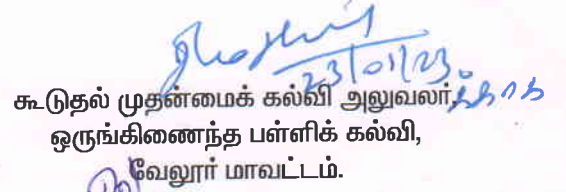 23/01/23
கூடுதல் முதன்மைக் கல்வி அலுவலர்,க்காக
ஒருங்கிணைந்த பள்ளிக் கல்வி,
வேலூர் மாவட்டம்.